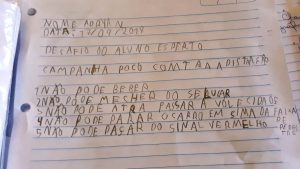 NOME ADRYAN
DATA: 19/09/2019
DESAFIO DO ALUNO ESPERTO
CAMPANHA POCO COMTARA A DISTRASÃO
1 NÃO PODE BEBER
2 NÃO PODE MECHER DO SELULAR
3 NÃO PODE ATRA PAISAR A VOLE CIDADE
4 NÃO PODE PARAR O CARRO EM SIMA DA FAIXA DE
5 NÃO PODE PASAR DO SINAL VERMELHO